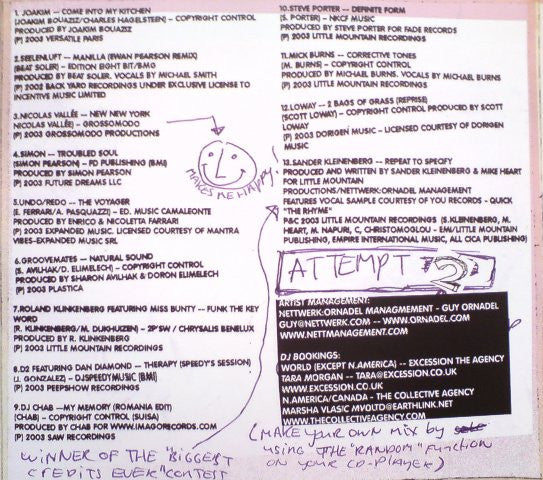 1. JOAKIM -- COME INTO MY KITCHEN
(JOAKIM BOUAZIZ/CHARLES HAGELSTEEN) - COPYRIGHT CONTROL
PRODUCED BY JOAKIM BOUAZIZ
(P) 2003 VERSATILE PARIS
2.SEELENLUFT -- MANILLA (EWAN PEARSON REMIX)
(BEAT SOLER) - EDITION EIGHT BIT/BMG
PRODUCED BY BEAT SOLER. VOCALS BY MICHAEL SMITH
(P) 2002 BACK YARD RECORDINGS UNDER EXCLUSIVE LICENSE TO
INCENTIVE MUSIC LIMITED
3.NICOLAS VALLÉE -- NEW NEW YORK
NICOLAS VALLÉE) - GROSSOMODO
(P) 2003 GROSSOMODO PRODUCTIONS
4.SIMON -- TROUBLED SOUL
(SIMON PEARSON) - FD PUBLISHING (BMI)
PRODUCED BY SIMON PEARSON
(P) 2003 FUTURE DREAMS LLC
5.UNDO/REDO -- THE VOYAGER
(E. FERRARI/A. PASQUAZZI) - ED. MUSIC CAMALEONTE
PRODUCED BY ENRICO & NICOLETTA FARRARI
(P) 2003 EXPANDED MUSIC. LICENSED COURTESY OF MANTRA
VIBES-EXPANDED MUSIC SRL
6.GROOVEMATES -- NATURAL SOUND
(S. AVILHAK/D. ELIMELECH) - COPYRIGHT CONTROL
PRODUCED BY SHARON AVILHAK & DORON ELIMELECH
(P) 2003 PLASTICA
7.ROLAND KLINKENBERG FEATURING MISS BUNTY -- FUNK THE KEY
WORD
(R. KLINKENBERG/M. DIJKHUIZEN) - 2P'SW / CHRYSALIS BENELUX
PRODUCED BY R. KLINKENBERG
(P) 2003 LITTLE MOUNTAIN RECORDINGS
8.D2 FEATURING DAN DIAMOND -- THERAPY (SPEEDY'S SESSION)
(J. GONZALEZ) - DJSPEEDYMUSIC (BMI)
(P) 2003 PEEPSHOW RECORDINGS
9.DJ CHAB --MY MEMORY (ROMANIA EDIT)
(CHAB) - COPYRIGHT CONTROL (SUISA)
PRODUCED BY CHAB FOR WWW.IMAGORECORDS.COM
(P) 2003 SAW RECORDINGS
WINNER OF THE "BIGGEST
CREDITS EVER" CONTEST
MAKES ME HAPPY!
10.STEVE PORTER -- DEFINITE FORM
(S. PORTER) - NKCF MUSIC
PRODUCED BY STEVE PORTER FOR FADE RECORDS
(P) 2003 LITTLE MOUNTAIN RECORDINGS
11.MICK BURNS -- CORRECTIVE TONES
(M. BURNS) - COPYRIGHT CONTROL
PRODUCED BY MICHAEL BURNS. VOCALS BY MICHAEL BURNS
(P) 2003 LITTLE MOUNTAIN RECORDINGS
12.LOWAY -- 2 BAGS OF GRASS (REPRISE)
(SCOTT LOWAY) - COPYRIGHT CONTROL PRODUCED BY SCOTT
LOWAY
(P) 2003 DORIGEN MUSIC - LICENSED COURTESY OF DORIGEN
MUSIC
13.SANDER KLEINENBERG -- REPEAT TO SPECIFY
PRODUCED AND WRITTEN BY SANDER KLEINENBERG & MIKE HEART
FOR LITTLE MOUNTAIN
PRODUCTIONS/NETTWERK:ORNADEL MANAGEMENT
FEATURES VOCAL SAMPLE COURTESY OF YOU RECORDS - QUICK
"THE RHYME"
P&C 2003 LITTLE MOUNTAIN RECORDINGS (S.KLEINENBERG, M.
HEART, M. NAPURI, C, CHRISTOMOGLOU - EMI/LITTLE MOUNTAIN
PUBLISHING, EMPIRE INTERNATIONAL MUSIC, ALL CICA PUBLISHING)
ATTEMPT 2
ARTIST MANAGEMENT:
NETTWERK:ORNADEL MANAGMEMENT - GUY ORNADEL
GUY@NETTWERK.COM -- WWW.ORNADEL.COM
WWW.NETTMANAGEMENT.COM
DJ BOOKINGS:
WORLD (EXCEPT N.AMERICA) -- EXCESSION THE AGENCY
TARA MORGAN -- TARA@EXCESSION.CO.UK
WWW.EXCESSION.CO.UK
N.AMERICA/CANADA - THE COLLECTIVE AGENCY
MARSHA VLASIC MVOLTD@EARTHLINK.NET
WWW.THECOLLECTIVEAGENCY.COM
(MAKE YOUR OWN MIX BY
USING THE "RANDOM" FUNCTION
ON YOUR CD-PLAYER)